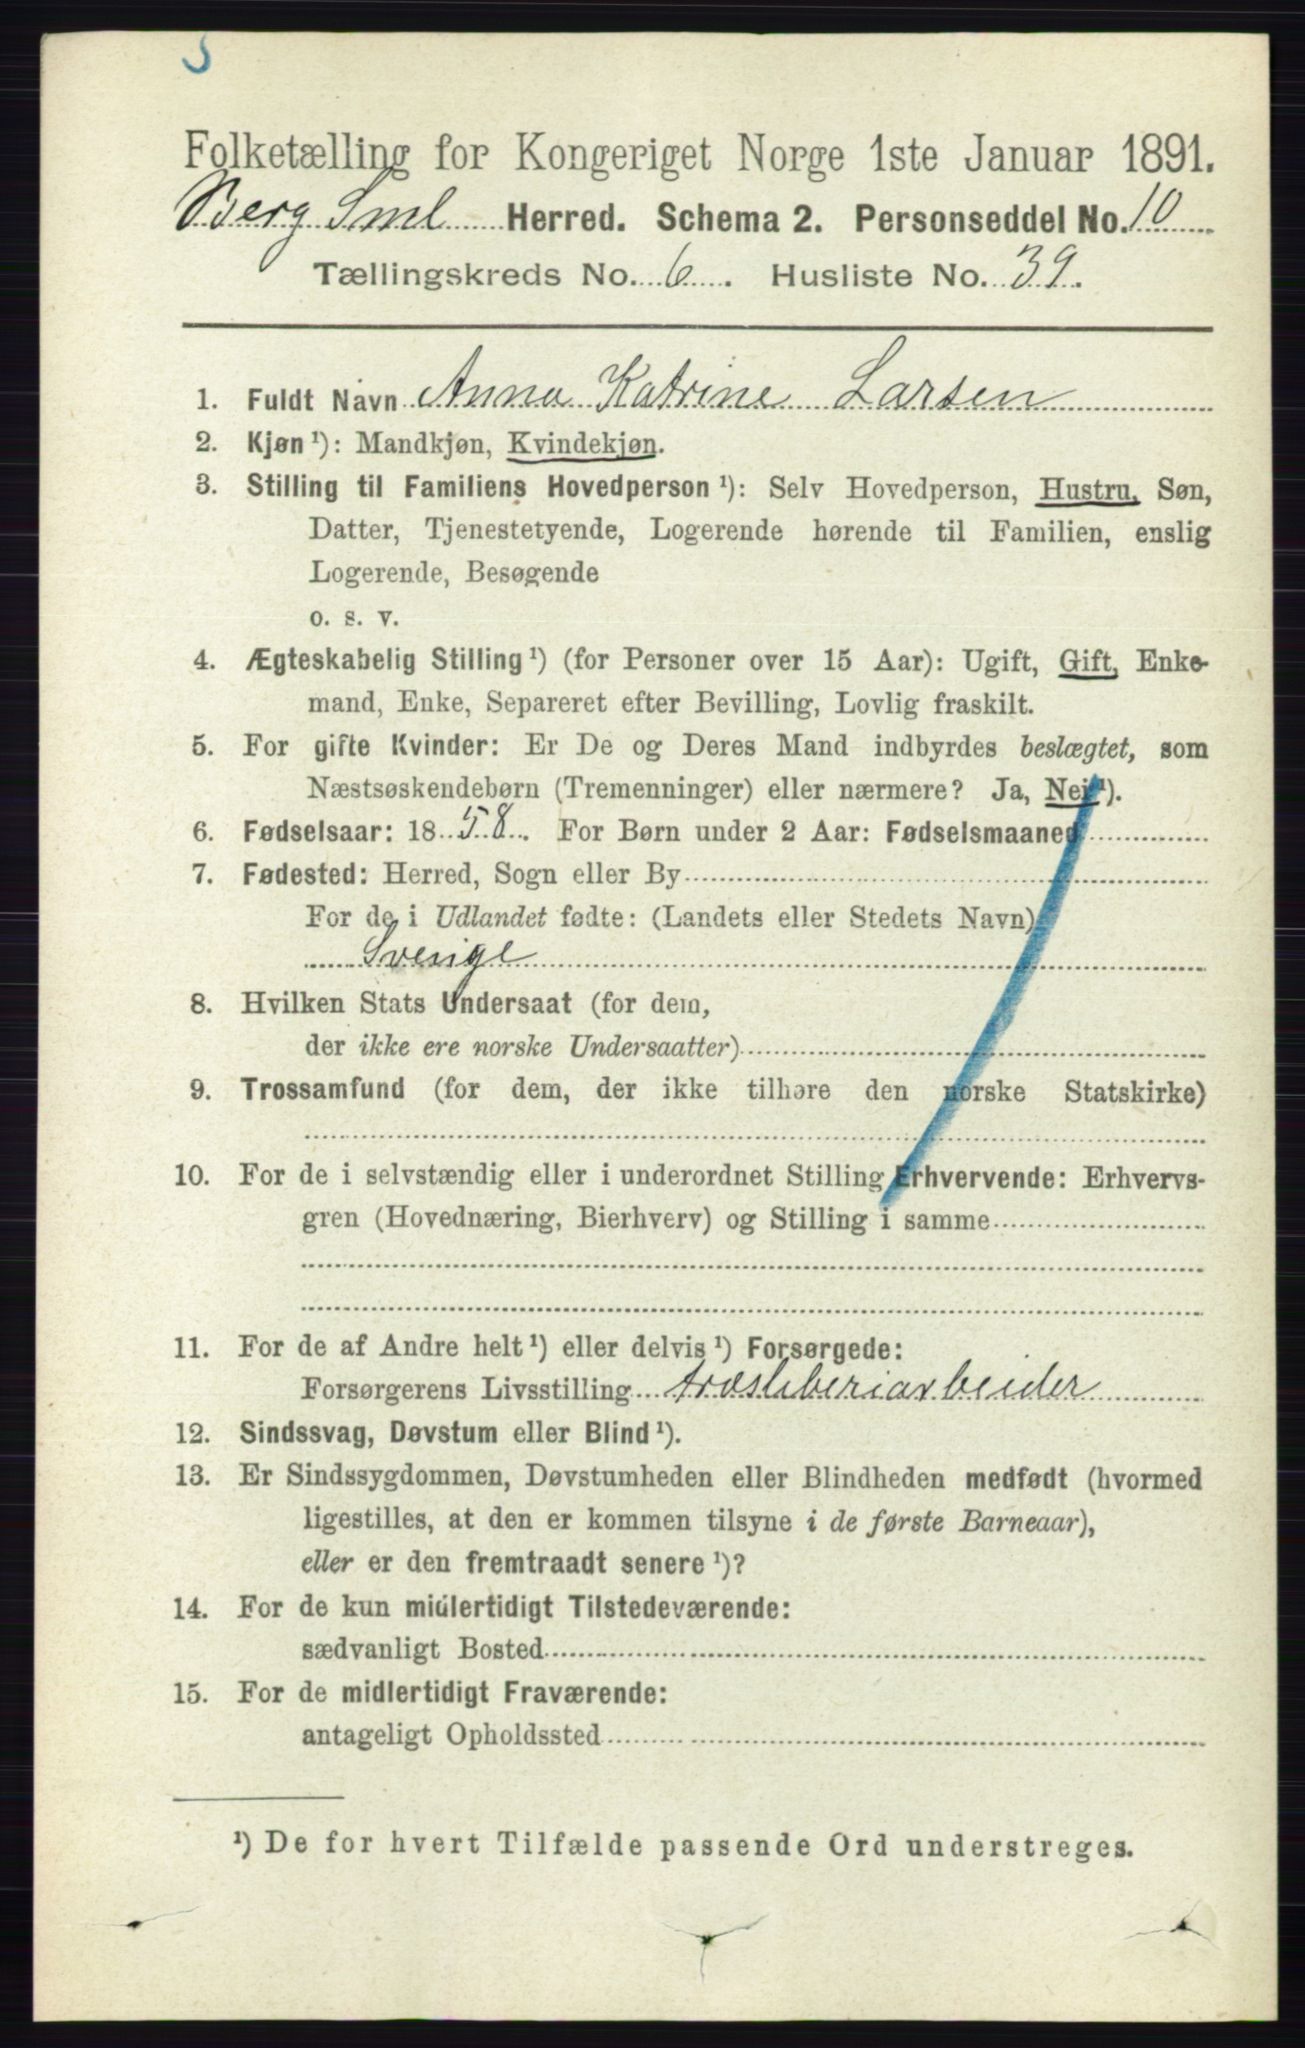 S
Folketælling for Kongeriget Norge 1ste Januar 1891.
Berg Sml Herred. Schema 2. Personseddel No. 10
Tællingskreds No. 6. Husliste No. 39.
1. Fuldt Navn Anna Katrine Larsen
2. Kjøn¹): Mandkjøn, Kvindekjøn.
3. Stilling til Familiens Hovedperson¹): Selv Hovedperson, Hustru, Søn,
Datter, Tjenestetyende, Logerende hørende til Familien, enslig
Logerende, Besøgende
o. s. v.
4. Ægteskabelig Stilling¹) (for Personer over 15 Aar): Ugift, Gift, Enke-
mand, Enke, Separeret efter Bevilling, Lovlig fraskilt.
5. For gifte Kvinder: Er De og Deres Mand indbyrdes beslægtet, som
Næstsøskendebørn (Tremenninger) eller nærmere? Ja, Nei¹).
6. Fødselsaar: 1858. For Børn under 2 Aar: Fødselsmaaned
7. Fødested: Herred, Sogn eller By
For de i Udlandet fødte: (Landets eller Stedets Navn)
Sverige
8. Hvilken Stats Undersaat (for dem,
der ikke ere norske Undersaatter)
9. Trossamfund (for dem, der ikke tilhøre den norske Statskirke)
10. For de i selvstændig eller i underordnet Stilling Erhvervende: Erhvervs-
gren (Hovednæring, Bierhverv) og Stilling i samme
11. For de af Andre helt¹) eller delvis¹) Forsørgede:
Forsørgerens Livsstilling træsliberiarbeider
12. Sindssvag, Døvstum eller Blind¹).
13. Er Sindssygdommen, Døvstumheden eller Blindheden medfødt (hvormed
ligestilles, at den er kommen tilsyne i de første Barneaar),
eller er den fremtraadt senere¹)?
14. For de kun midlertidigt Tilstedeværende:
sædvanligt Bosted
15. For de midlertidigt Fraværende:
antageligt Opholdssted
¹) De for hvert Tilfælde passende Ord understreges.